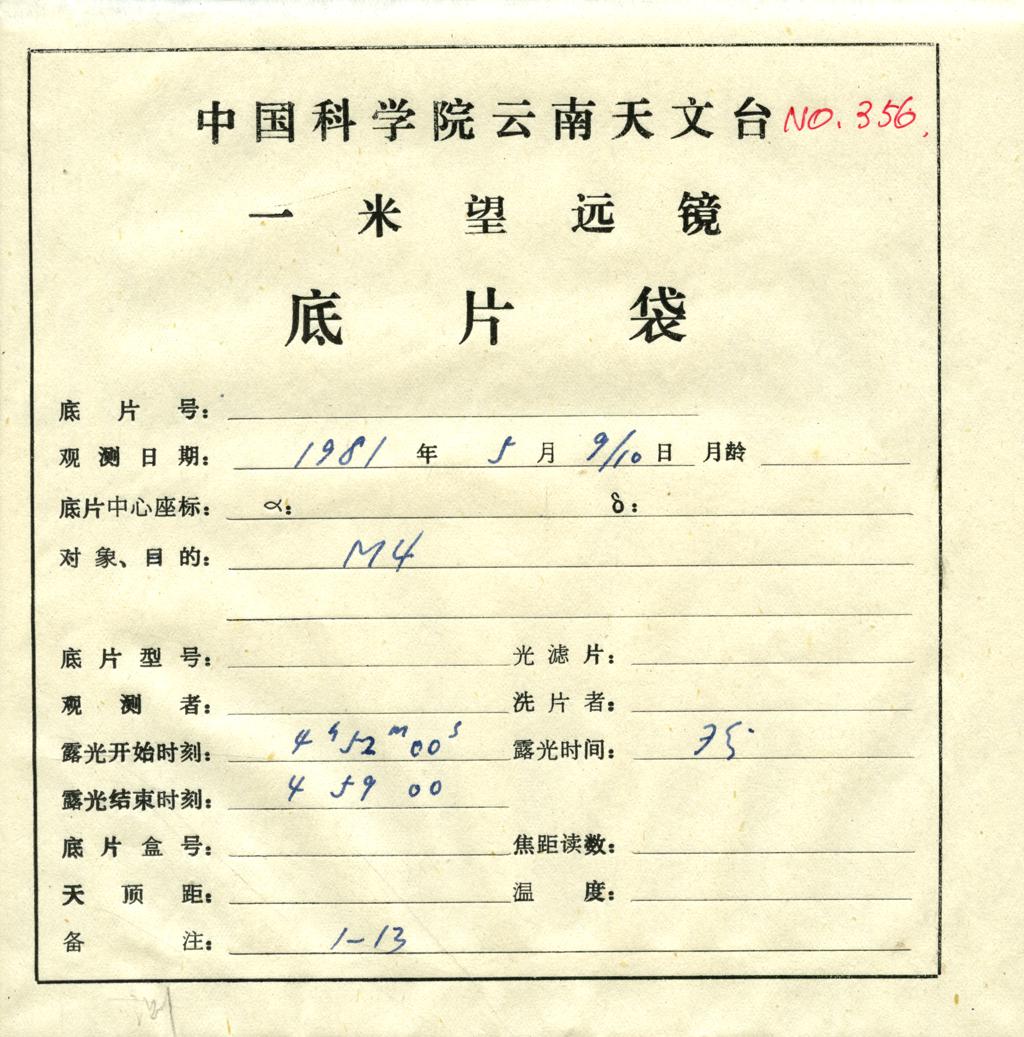 中国科学院云南天文台 NO. 356.
一米望远镜
底片袋
底片号：
观测日期： 1981 年 5 月 9/10 日 月龄
底片中心座标： α： δ：
对象、目的： M4
底片型号： 光滤片：
观测者： 洗片者：
露光开始时刻： 4h 52m 00s 露光时间：
露光结束时刻： 4 59 00
底片盒号： 焦距读数：
天顶距： 温度：
备注： 1-13